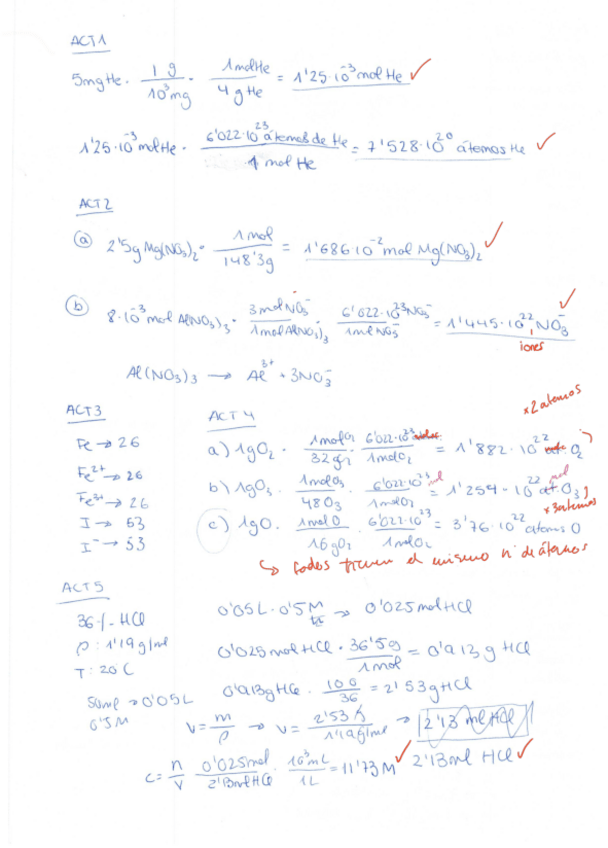 ACT1
5mg He · 1 g / 10³mg · 1mol He / 4 g He = 1'25·10⁻³ mol He ✓
1'25·10⁻³ mol He · 6'022·10²³ átomos de He / 1 mol He = 7'528·10²⁰ átomos He ✓
ACT2
ⓐ 2'5g Mg(NO₃)₂ · 1mol / 148'3g = 1'686·10⁻² mol Mg(NO₃)₂ ✓
ⓑ 8·10⁻³ mol Al(NO₃)₃ · 3mol NO₃⁻ / 1mol Al(NO₃)₃ · 6'022·10²³ NO₃⁻ / 1ml NO₃⁻ = 1'445·10²² NO₃⁻ ✓
iones
Al(NO₃)₃ → Al³⁺ + 3NO₃⁻
ACT3
Fe → 26
Fe²⁺ → 26
Fe³⁺ → 26
I → 53
I⁻ → 53
ACT4
x2 atomos
a) 1g O₂ · 1mol O₂ / 32 g · 6'022·10²³ / 1mol O₂ = 1'882·10²² O₂
b) 1g O₃ · 1mol O₃ / 48 O₃ · 6'022·10²³ mol / 1mol O₂ = 1'254·10²² mol O₃
x3 atomos
c) 1g O · 1mol O / 16 g O₂ · 6'022·10²³ / 1ml O₂ = 3'76·10²² atoms O
↳ todos tienen el mismo nº de átomos
ACT5
36% HCl
ρ: 1'19 g/ml
T: 20 C
50ml → 0'05L
0'5M
0'05L · 0'5M → 0'025mol HCl
0'025mol HCl · 36'5g / 1mol = 0'913 g HCl
0'913g HCl · 100 / 36 = 2'53g HCl
V = m / ρ → V = 2'53 g / 1'19g/ml → 2'13 ml HCl
2'13ml HCl ✓
C = n / V 0'025mol / 2'13ml HCl · 10³ mL / 1L = 11'73 M ✓